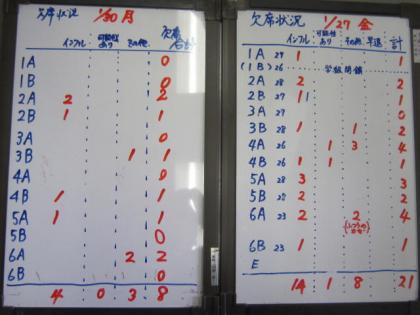 欠席状況 1/30 月
インフル 可能性あり その他 欠席合計
1A 0
1B 0
2A 2 2
2B 1 1
3A 0
3B 1 1
4A 0
4B 1 1
5A 1 1
5B 0
6A 2 2
6B 0
4 0 3 8
欠席状況 1/27 金
インフル 可能性あり その他 早退 計
1A 29 1 1
(1B) 26 学級閉鎖
2A 28 2 2
2B 27 1 1
3A 27 0
3B 28 1 1 2
4A 26 1 3 4
4B 26 1 1 2
5A 28 3 3
5B 28 2 2
6A 23 2 2 4
6B 23 1 1
E
14 1 8 21